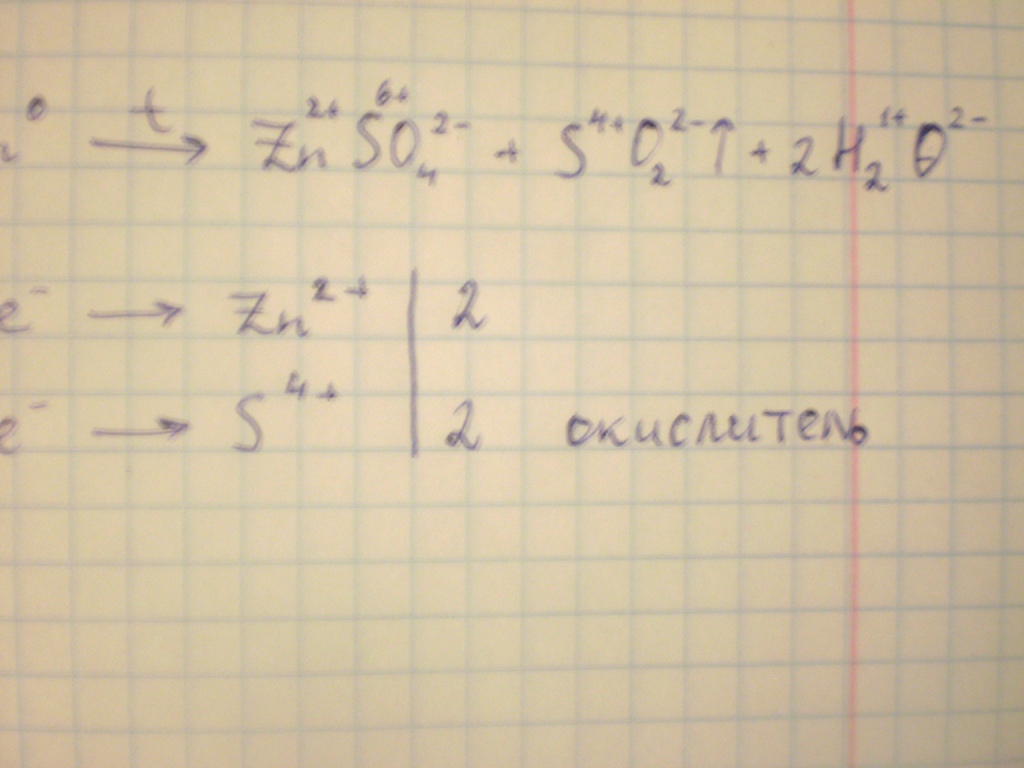 n⁰ —t→ Zn²⁺S⁶⁺O₄²⁻ + S⁴⁺O₂²⁻↑ + 2H₂¹⁺O²⁻
e⁻ → Zn²⁺ | 2
e⁻ → S⁴⁺ | 2 окислитель